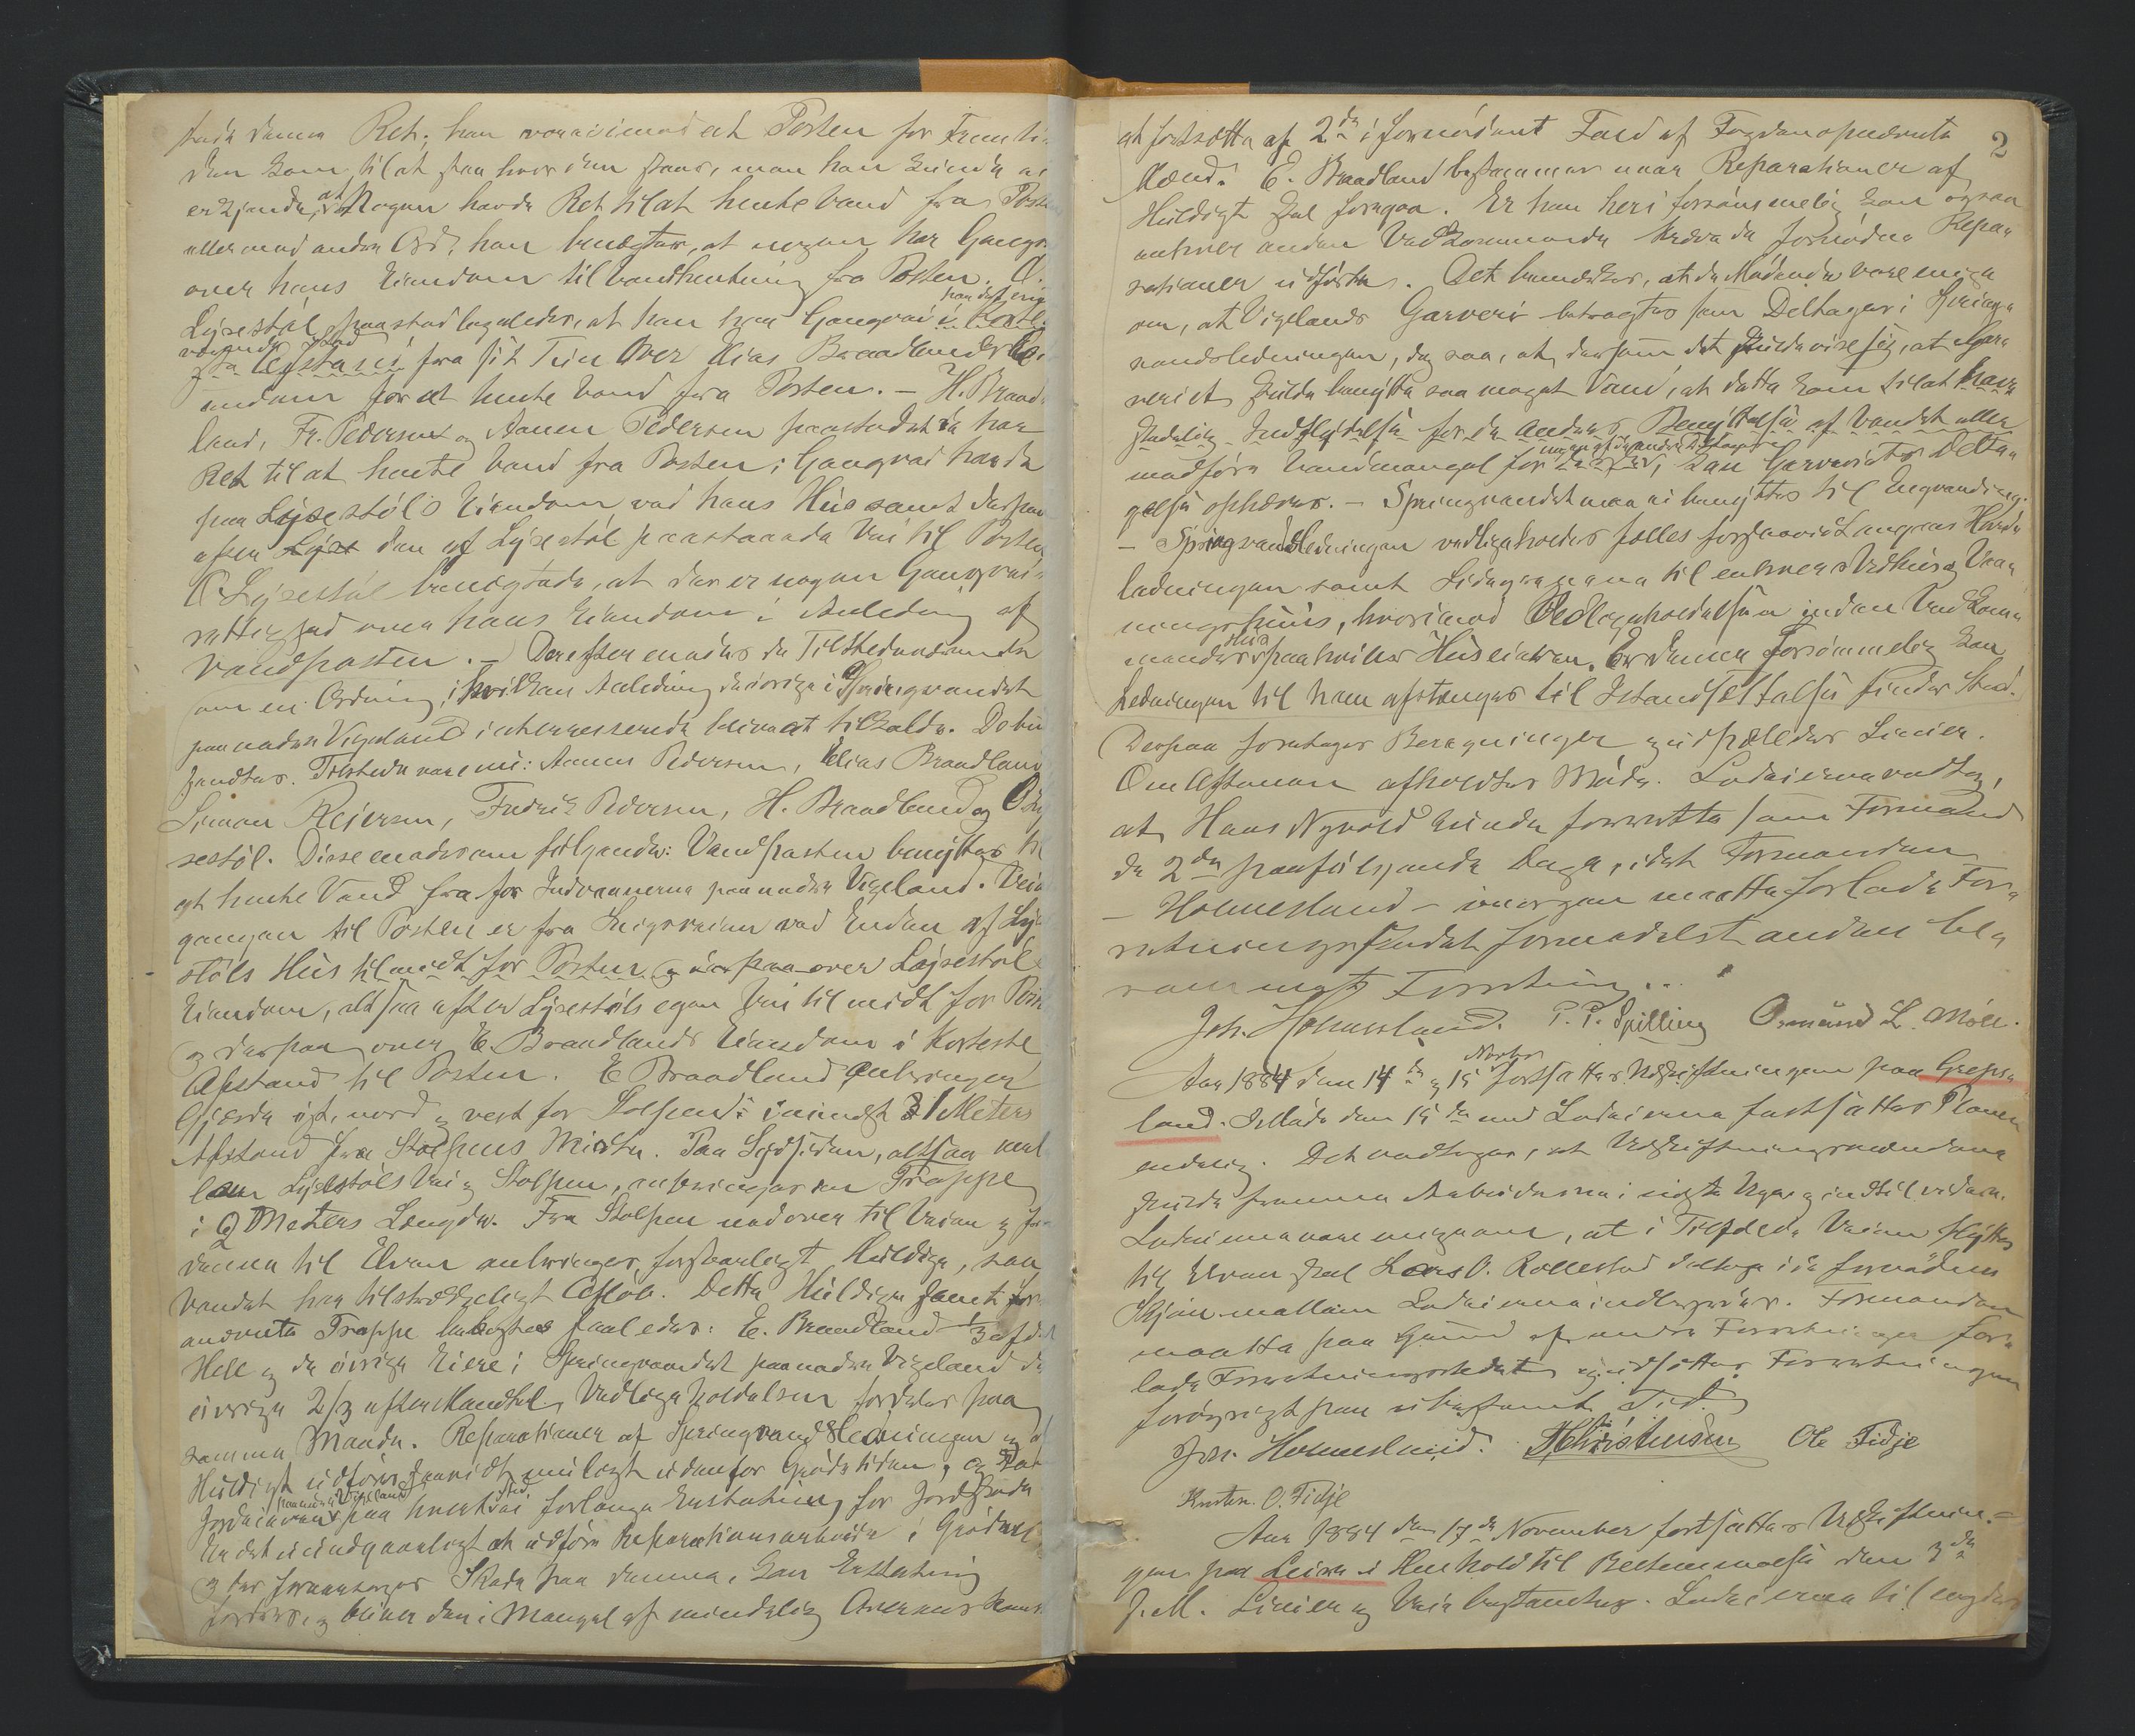 denne Ret; han var imod at Posten for Fremti-
den kom til at staa hvor den staar, men han kunde ei
erkjende, at Nogen havde Ret til at hente Vand fra Posten
eller med andre Ord: han benægter, at nogen har Gangvei
over hans Eiendom til Vandhentning fra Posten. O.
Lyseståls paastod ligeledes, at han har Gangvei i korte-
ste Afstand fra sit Tun over Elias Braadlands Ei-
endom for at hente Vand fra Posten. – H. Braad-
land, Fr. Pedersen og Aanen Pedersen paastod at de har
Ret til at hente Vand fra Posten; Gangvei har de
paa Lysestøls Eiendom ved hans Hus samt derpaa
efter den af Lysestøl paastaaede Vei til Posten
O Lysestøl benægtede, at der er nogen Gangvei-
rettighed over hans Eiendom i Anledning af
Vandposten. – Derefter enedes de Tilstedeværende
om en Ordning, i hvilken Anledning de øvrige i Springvandet
paa nedre Vigeland interesserede blev at tilkalde. De bu-
sendtes. Tilstede vare nu: Aanen Pedersen, Elias Braadland
Simon Reiersen, Fredrik Pedersen, H. Braadland og O Ly-
sestøl. Disse enedes om følgende: Vandposten benyttes til
at hente Vand fra for Indvaanerne paa nedre Vigeland. Vei
gangen til Posten er fra Krigsveien ved Enden af Lyse-
støls Hus til midt for Posten og derpaa over Lysestøls
Eiendom, altsaa efter Lysestøls egen Vei til midt for Posten
og derpaa over E. Braadlands Eiendom i korteste
Afstand til Posten. E Braadland anbringer
Gjerde øst, nord og vest for Stolpen i mindst 1 Meters
Afstand fra Stolpens Midte. Paa Sydsiden, altsaa mel-
lem Lysestøls Vei og Stolpen, anbringes en Trappe
i 2 Meters Længde. Fra Stolpen nedover til Veien og fra
denne til Elven anbringes forsvarligt Huldige, saa
Vandet har tilstrækkeligt Afløb. Dette Huldige samt før
anførte Trappe bekostes saaledes: E. Braadland 1/3 af det
Hele og de øvrige Eiere i Springvandet paa nedre Vigeland de
øvrige 2/3 efter Mandtal. Vedligeholdelsen fordeles paa
samme Maade. Reparationer af Springvandsledningen og
Huldiget udføres saavidt muligt udenfor Grødetiden, og kan
Jordeierne paa nedre Vigeland paa hvert Sted forlange Erstatning for Jordskade
Er det uundgaaeligt at udføre Reparationsarbeide i Grødetid
og der foraarsages Skade paa denne, kan Erstatning
fordres, og bliver den i Mangel af mindelig Overenskomst
2
at fastsætte af 2de i fornødent Fald af Fogden opnævnte
Mænd. E. Braadland bestemmer naar Reparationer af
Huldiget skal foregaa. Er han heri forsømmelig kan ogsaa
enhver anden Vedkommende kræve de fornødne Repa-
rationer udførte. Det bemærkes, at de Mødende vare enige
om, at Vigelands Garveri betragtes som Deltager i Spring-
vandsledningen, dog saa, at dersom det skulde vise sig, at Gar-
veriet skulde benytte saa meget Vand, at dette kom til at have
skadelig Indflydelse for de andres Benyttelse af Vandet eller
medføre Vandmangel for nogen af de andre Deltagere, kan Garveriets Delta-
gelse ophæves. – Springvandet maa ei benyttes til Engvanding.
– Springvandsledningen vedligeholdes fælles forsaavidt angaar Hoved-
ledningen samt Sidegrenene til enhvers Vedhus og Vaa-
ningshuus, hvorimod Vedligeholdelsen inden Vedkom-
mendes Hus paahviler Huseieren. Er denne forsømmelig kan
Ledningen til ham afstenges til Istandsættelse finder Sted.
Derpaa foretages Beregninger og udpæledes Linier.
Om Aftenen afholdtes Møde. Lodeierne vedtog,
at Hans Nyvold kunde forrette som Formand
de 2de paafølgende Dage, idet Formanden
– Holmesland – imorgen maatte forlade For-
retningsstedet formedelst anden be-
rammet Forretning. ..
Joh. Holmesland. P. T. Spilling Osmund L. Möll.
Aar 1884 den 14de og 15 Novbr fortsattes Udskiftningen paa Greps-
land. I Møde den 15de med Lodeierne fastsattes Planen
endelig. Det vedtoges, at Udskiftningsmændene
skulde fremme Arbeiderne i næste Uge og indtil videre.
Lodeierne vare enige om, at i Tilfælde Veien flyttes
til Elven skal Lars O. Rollestad deltage i de fornødne
Skjøn mellem Lodeierne indbyrdes. Formanden
maatte paa Grund af andre Forretninger for-
lade Forretningsstedet og udsattes Forretningen
forøvrigt paa ubestemt Tid.
Joh. Holmesland. Christensen Ole Fidje
Kristen. O. Fidje
Aar 1884 den 17de November fortsattes Udskiftnin-
gen paa Leire i Henhold til Bestemmelse den 3de
d. M. Linier og Veie bestemtes. Lodeierne tilsagdes